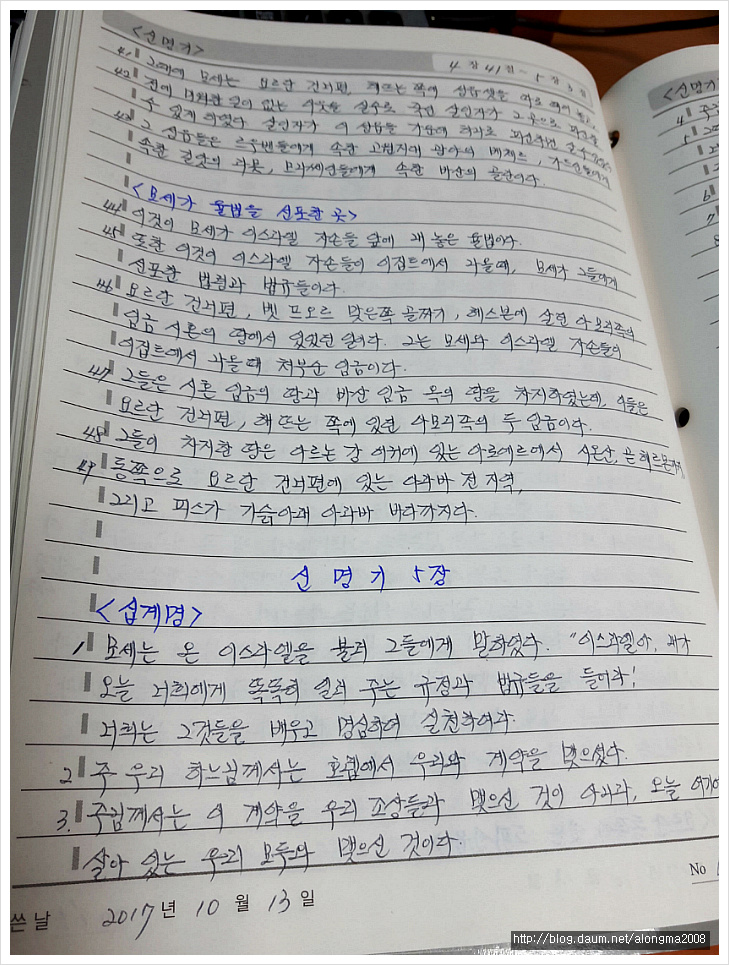 <신명기>
4장 41절 ~ 5장 3절
41 그때에 모세는 요르단 건너편, 해뜨는 쪽에 성읍 셋을 따로 떼어
42 전에 미워한 일이 없는 이웃을 실수로 죽인 살인자가 그곳으로
수 있게 하였다. 살인자가 이 성읍들 가운데 하나로 피신하면
43 그 성읍들은 르우벤인들에게 속한 고원지대 광야의 베체르, 가드인들에게
속한 길앗의 라못, 므나쎄인들에게 속한 바산의 골란이다.
<모세가 율법을 선포한 곳>
44 이것이 모세가 이스라엘 자손들 앞에 내 놓은 율법이다.
45 또한 이것이 이스라엘 자손들이 이집트에서 나올때, 모세가 그들에게
선포한 법령과 법규들이다.
46 요르단 건너편, 벳 프오르 맞은쪽 골짜기, 헤스본에 살던 아모리족의
임금 시혼의 땅에서 있었던 일이다. 그는 모세와 이스라엘 자손들이
이집트에서 나올때 쳐부순 임금이다.
47 그들은 시혼 임금의 땅과 바산 임금 옥의 땅을 차지하였는데, 이들은
요르단 건너편, 해 뜨는 쪽에 있던 아모리족의 두 임금이다.
48 그들이 차지한 땅은 아르논 강 어귀에 있는 아로에르에서 시온산, 곧 헤르몬까지
49 동쪽으로 요르단 건너편에 있는 아라바 전 지역,
그리고 피스가 기슭아래 아라바 바다까지다.
신 명 기 5장
<십계명>
1 모세는 온 이스라엘을 불러 그들에게 말하였다. "이스라엘아, 내가
오늘 너희에게 똑똑히 일러 주는 규정과 법규들을 들어라!
너희는 그것들을 배우고 명심하여 실천하여라.
2 주 우리 하느님께서는 호렙에서 우리와 계약을 맺으셨다.
3. 주님께서는 이 계약을 우리 조상들과 맺으신 것이 아니라, 오늘 여기에
살아 있는 우리 모두와 맺으신 것이다.
쓴날 2017년 10월 13일
No
<신명기
4
5
6
7
http://blog.daum.net/alongma2008